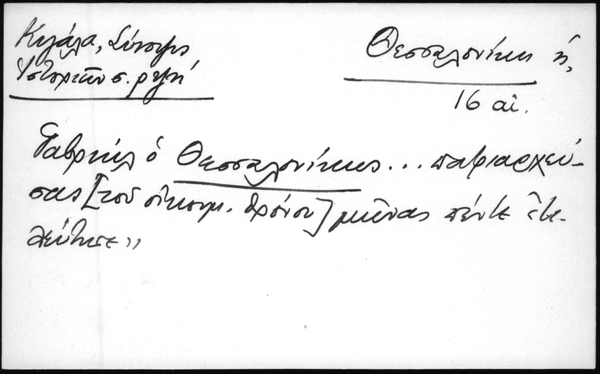 Κιγάλα, Σύνοψις
Ἱστοριῶν σ. ρεή
Θεσσαλονίκης ἡ,
16 αἰ.
Γαβριὴλ ὁ Θεσσαλονίκης... πατριαρχεύ-
σας [τοῦ οἰκουμ. θρόνου] μῆνας πέντε ἐτε-
λεύτησε»